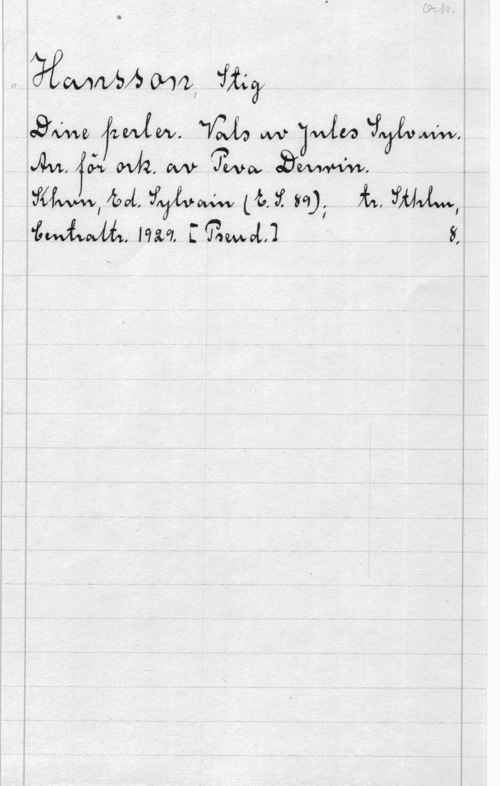 Ork.
Hansson, Stig
Dine perler. Vals av Jules Sylvain.
Arr. för ork. av Peva Derwin.
Khvn, Ed. Sylvain (E.S. 89); tr. Sthlm,
Centraltr. 1929. [Pseud.] 8.